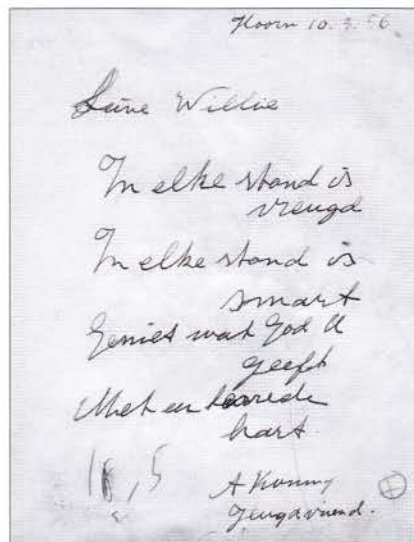 Hoorn 10. 3. 56
Lieve Willie
In elke stand is
vreugd
In elke stand is
smart
Geniet wat God U
geeft
Met een
hart
A Koning
Jeugdvriend.